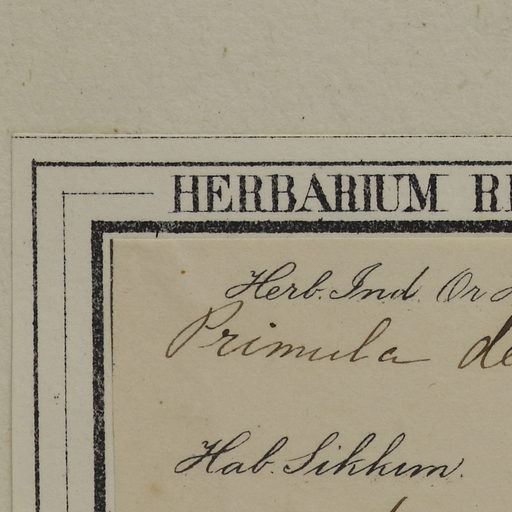 HERBARIUM
Herb. Ind. Or
Primula de
Hab. Sikkim.